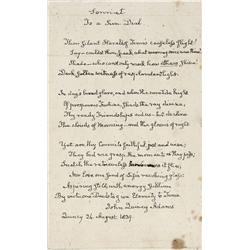 Sonnet
To a Sun Dial
Thou silent Herald of Time's ceaseless flight!
Say could'st thou speak, what warning voice were thine?
Shade, who canst only mark how others shine!
Dark, sullen witness of resplendent light.
In day's broad glare, and when the noontide bright
Of prosperous Fortune, sheds the ray divine,
Thy ready Friendship aids us – but decline
The clouds of Morning – and the gloom of night
Yet are thy Counsels faithful, just, and wise;
They bid us grasp the moments as they pass;
Snatch the retrieveless as it
Nor lose one sand of Life's revolving glass
Aspiring still, with energy sublime
By virtuous Deeds to give Eternity to Time.
John Quincy Adams
Quincy 26. August 1839.